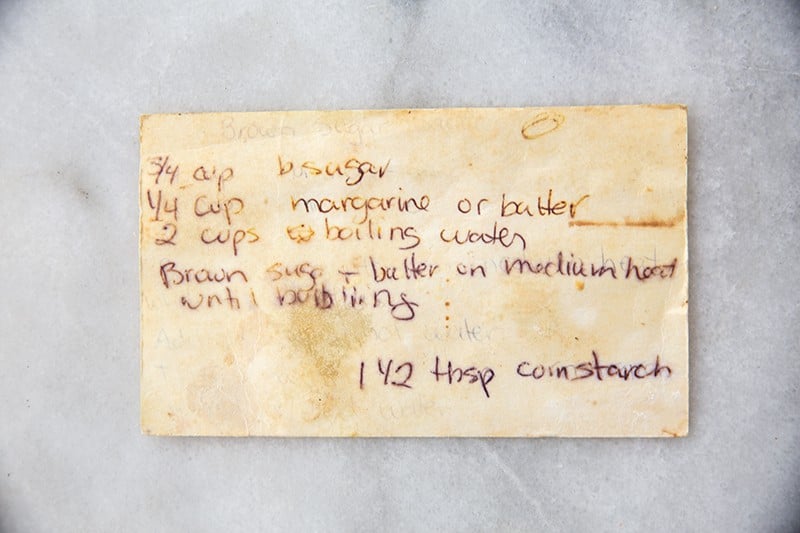 Brown Sugar
3/4 cup b.sugar
1/4 cup margarine or butter
2 cups boiling water
Brown suga + butter on medium heat
until bubbling
Add water
1 1/2 tbsp cornstarch